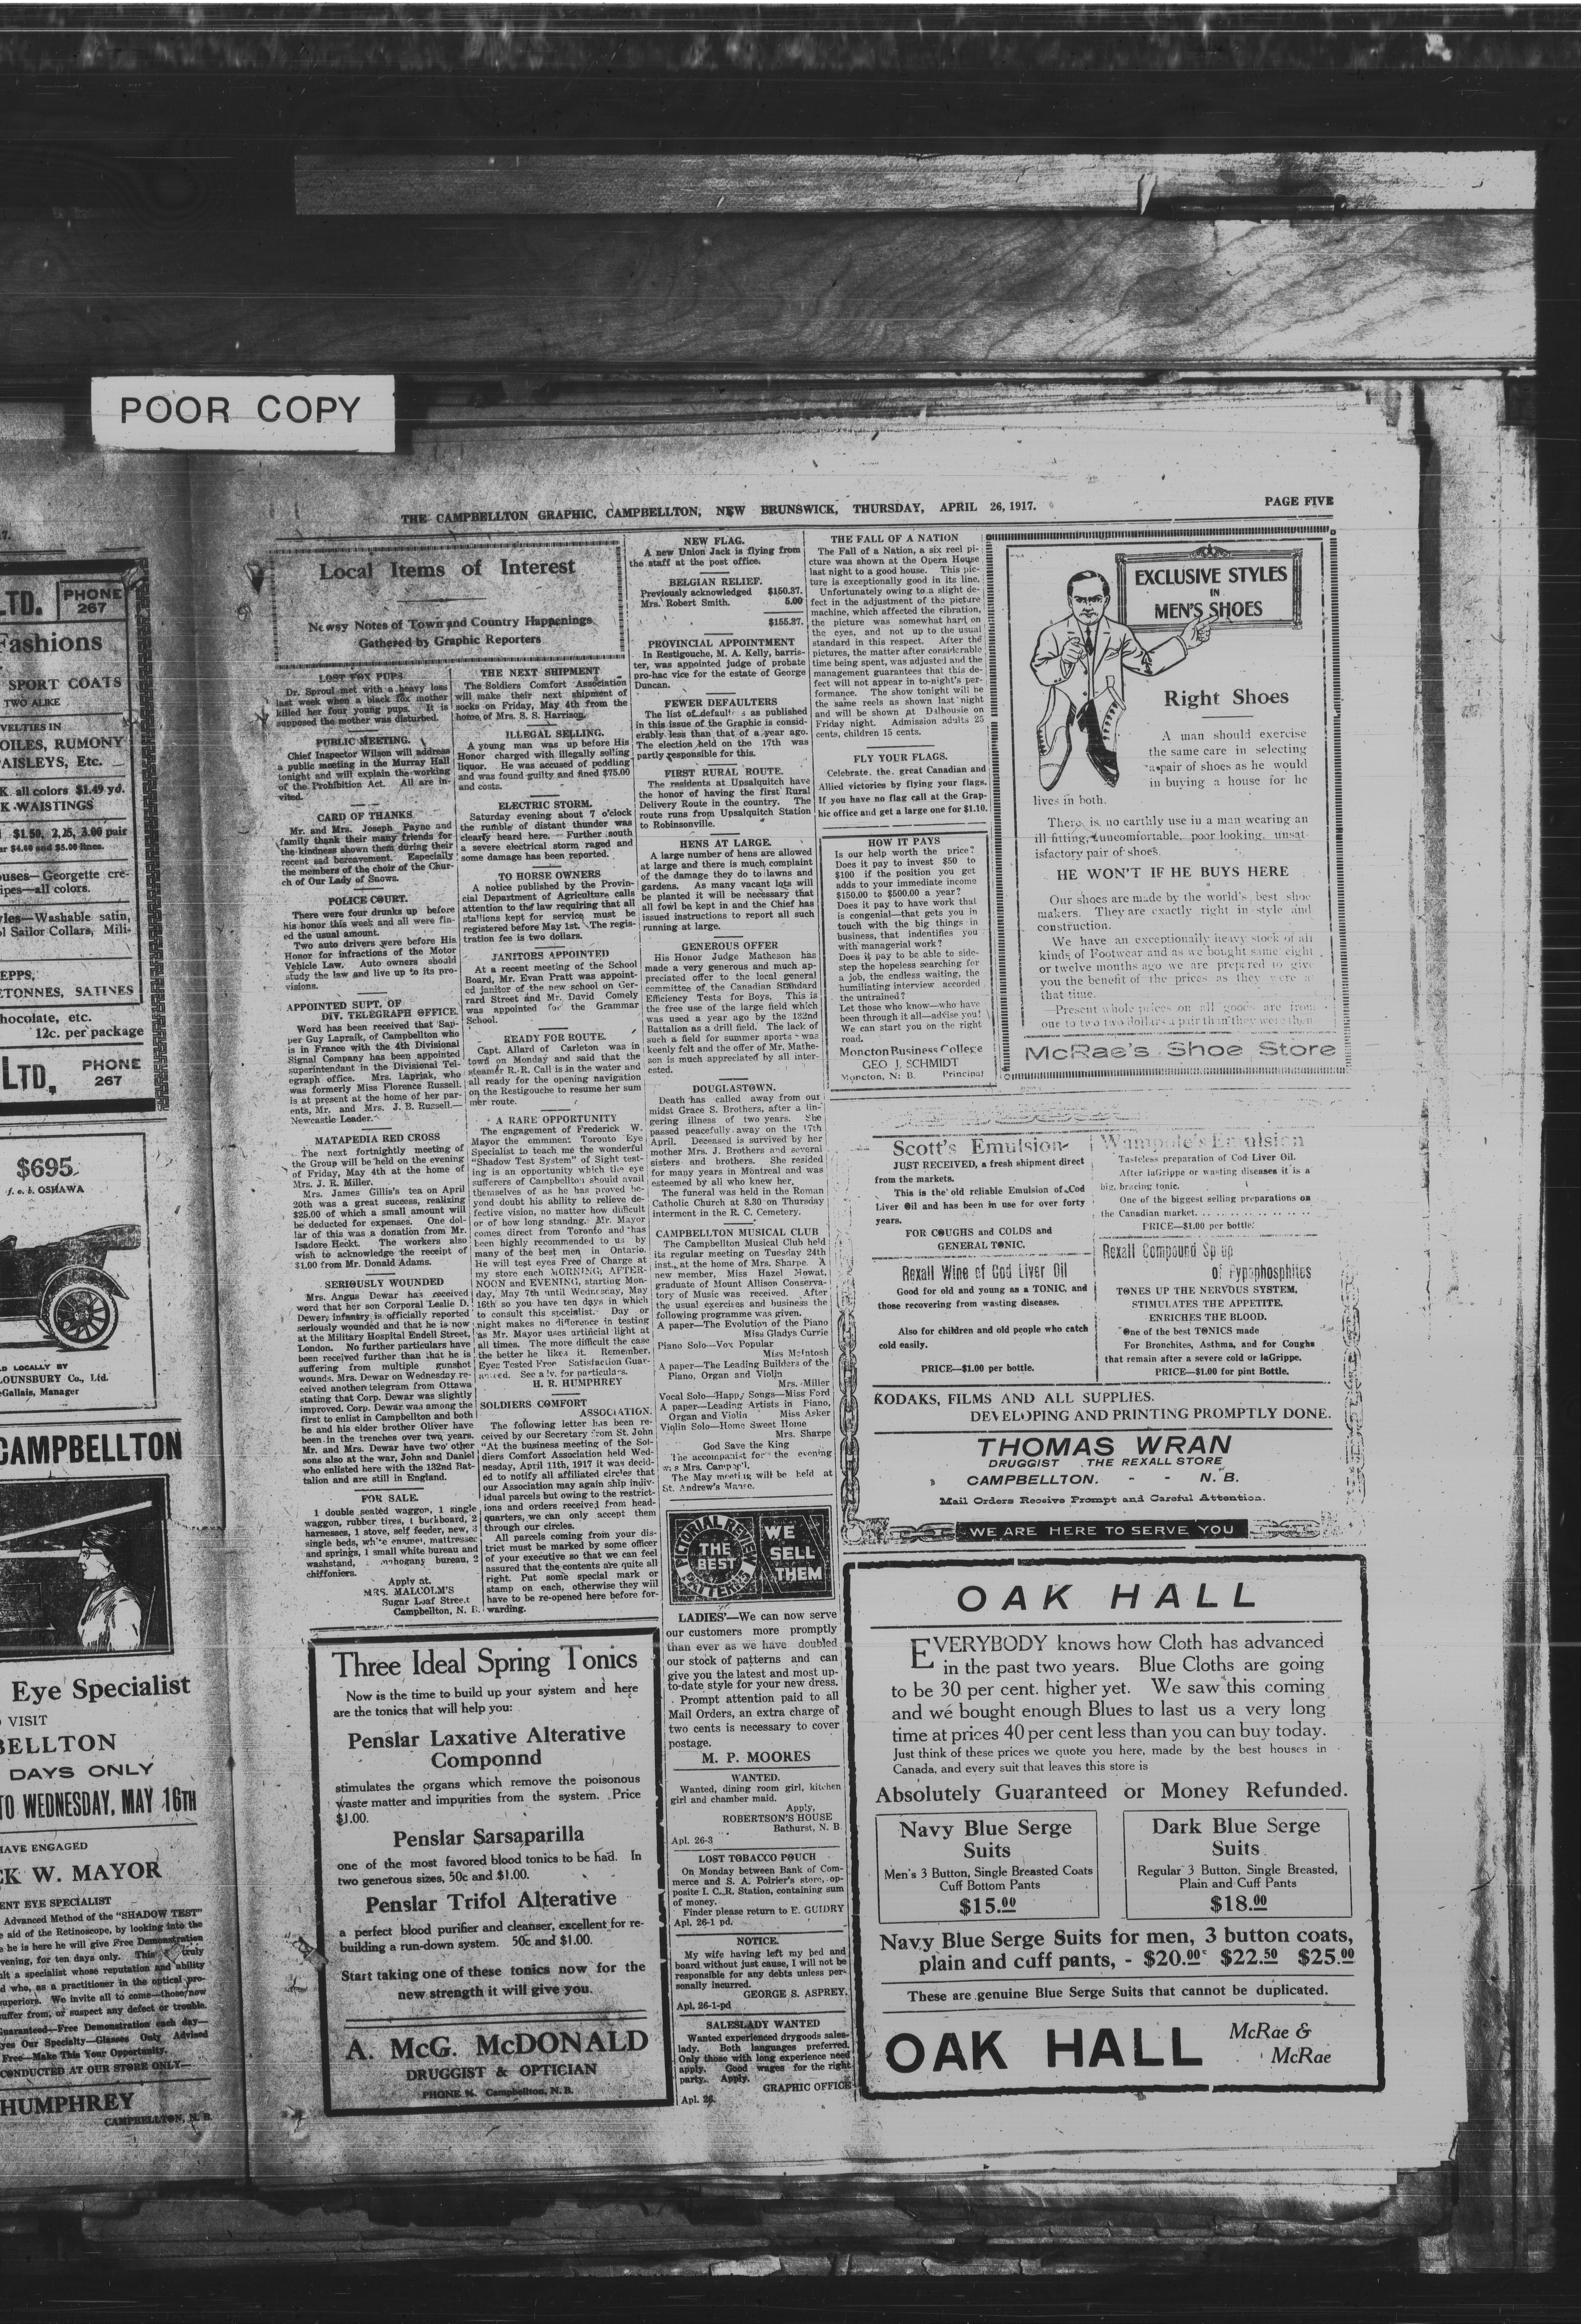 POOR COPY
THE CAMPBELLTON GRAPHIC, CAMPBELLTON, NEW BRUNSWICK, THURSDAY, APRIL 26, 1917.
PAGE FIVE
LTD.
PHONE
267
Fashions
SPORT COATS
TWO ALIKE
VELTIES IN
OILES, RUMONY
AISLEYS, Etc.
K all colors $1.49 yd.
K WAISTINGS
$1.50, 2.25, 3.00 pair
ar $4.00 and $5.00 lines.
uses—Georgette cre-
ipes—all colors.
yles—Washable satin,
ol Sailor Collars, Mili-
EPPS,
ETONNES, SATINES
hocolate, etc.
12c. per package
LTD,
PHONE
267
$695
f. o. b. OSHAWA
D LOCALLY BY
LOUNSBURY Co., Ltd.
eGallais, Manager
CAMPBELLTON
Eye Specialist
VISIT
BELLTON
DAYS ONLY
TO WEDNESDAY, MAY 16TH
HAVE ENGAGED
CK W. MAYOR
ENT EYE SPECIALIST
Advanced Method of the "SHADOW TEST"
e aid of the Retinoscope, by looking into the
e he is here he will give Free Demonstration
vening, for ten days only. This truly
ult a specialist whose reputation and ability
d who, as a practitioner in the optical pro-
superiors. We invite all to come—those now
suffer from, or suspect any defect or trouble.
Guaranteed—Free Demonstration each day—
yes Our Specialty—Glasses Only Advised
Free—Make This Your Opportunity.
CONDUCTED AT OUR STORE ONLY—
HUMPHREY
CAMPBELLTON, N. B.
Local Items of Interest
Newsy Notes of Town and Country Happenings
Gathered by Graphic Reporters
LOST FOX PUPS
Dr. Sproul met with a heavy loss
last week when a black fox mother
killed her four young pups. It is
supposed the mother was disturbed.
PUBLIC MEETING.
Chief Inspector Wilson will address
a public meeting in the Murray Hall
tonight and will explain the working
of the Prohibition Act. All are in-
vited.
CARD OF THANKS
Mr. and Mrs. Joseph Payne and
family thank their many friends for
the kindness shown them during their
recent sad bereavement. Especially
the members of the choir of the Chur-
ch of Our Lady of Snows.
POLICE COURT.
There were four drunks up before
his honor this week and all were fin-
ed the usual amount.
Two auto drivers were before His
Honor for infractions of the Motor
Vehicle Law. Auto owners should
study the law and live up to its pro-
visions.
APPOINTED SUPT. OF
DIV. TELEGRAPH OFFICE.
Word has been received that Sap-
per Guy Lapraik, of Campbellton who
is in France with the 4th Divisional
Signal Company has been appointed
superintendant in the Divisional Tel-
egraph office. Mrs. Lapriak, who
was formerly Miss Florence Russell,
is at present at the home of her par-
ents, Mr. and Mrs. J. B. Russell.—
Newcastle Leader.
MATAPEDIA RED CROSS
The next fortnightly meeting of
the Group will be held on the evening
of Friday, May 4th at the home of
Mrs. J. R. Miller.
Mrs. James Gillis's tea on April
20th was a great success, realizing
$25.00 of which a small amount will
be deducted for expenses. One dol-
lar of this was a donation from Mr.
Isadore Heckt. The workers also
wish to acknowledge the receipt of
$1.00 from Mr. Donald Adams.
SERIOUSLY WOUNDED
Mrs. Angus Dewar has received
word that her son Corporal Leslie D.
Dewer, infantry is officially reported
seriously wounded and that he is now
at the Military Hospital Endell Street,
London. No further particulars have
been received further than that he is
suffering from multiple gunshot
wounds. Mrs. Dewar on Wednesday re-
ceived another telegram from Ottawa
stating that Corp. Dewar was slightly
improved. Corp. Dewar was among the
first to enlist in Campbellton and both
he and his elder brother Oliver have
been in the trenches over two years.
Mr. and Mrs. Dewar have two other
sons also at the war, John and Daniel
who enlisted here with the 132nd Bat-
talion and are still in England.
FOR SALE.
1 double seated waggon, 1 single
waggon, rubber tires, 1 buckboard, 2
harnesses, 1 stove, self feeder, new, 3
single beds, white enamel, mattresses
and springs, 1 small white bureau and
washstand, mahogany bureau, 2
chiffoniers.
Apply at.
MRS. MALCOLM'S
Sugar Loaf Street
Campbellton, N. B.
THE NEXT SHIPMENT
The Soldiers Comfort Association
will make their next shipment of
socks on Friday, May 4th from the
home of Mrs. S. S. Harrison.
ILLEGAL SELLING.
A young man was up before His
Honor charged with illegally selling
liquor. He was accused of peddling
and was found guilty and fined $75.00
and costs.
ELECTRIC STORM.
Saturday evening about 7 o'clock
the rumble of distant thunder was
clearly heard here. Further south
a severe electrical storm raged and
some damage has been reported.
TO HORSE OWNERS
A notice published by the Provin-
cial Department of Agriculture calls
attention to the law requiring that all
stallions kept for service must be
registered before May 1st. The regis-
tration fee is two dollars.
JANITORS APPOINTED
At a recent meeting of the School
Board, Mr. Evan Pratt was appoint-
ed janitor of the new school on Ger-
rard Street and Mr. David Comely
was appointed for the Grammar
School.
READY FOR ROUTE.
Capt. Allard of Carleton was in
town on Monday and said that the
steamer R. R. Call is in the water and
all ready for the opening navigation
on the Restigouche to resume her sum
mer route.
A RARE OPPORTUNITY
The engagement of Frederick W.
Mayor the emminent Toronto Eye
Specialist to teach me the wonderful
"Shadow Test System" of Sight test-
ing is an opportunity which the eye
sufferers of Campbellton should avail
themselves of as he has proved be-
yond doubt his ability to relieve de-
fective vision, no matter how difficult
or of how long standng. Mr. Mayor
comes direct from Toronto and has
been highly recommended to us by
many of the best men in Ontario.
He will test eyes Free of Charge at
my store each MORNING, AFTER-
NOON and EVENING, starting Mon-
day, May 7th until Wednesday, May
16th so you have ten days in which
to consult this specialist. Day or
night makes no difference in testing
as Mr. Mayor uses artificial light at
all times. The more difficult the case
the better he likes it. Remember,
Eyes Tested Free Satisfaction Guar-
anteed. See adv. for particulars.
H. R. HUMPHREY
SOLDIERS COMFORT
ASSOCIATION.
The following letter has been re-
ceived by our Secretary from St. John
"At the business meeting of the Sol-
diers Comfort Association held Wed-
nesday, April 11th, 1917 it was decid-
ed to notify all affiliated circles that
our Association may again ship indiv-
idual parcels but owing to the restrict-
ions and orders received from head-
quarters, we can only accept them
through our circles.
All parcels coming from your dis-
trict must be marked by some officer
of your executive so that we can feel
assured that the contents are quite all
right. Put some special mark or
stamp on each, otherwise they will
have to be re-opened here before for-
warding.
NEW FLAG.
A new Union Jack is flying from
the staff at the post office.
BELGIAN RELIEF.
Previously acknowledged $150.37.
Mrs. Robert Smith. 5.00
$155.37.
PROVINCIAL APPOINTMENT
In Restigouche, M. A. Kelly, barris-
ter, was appointed judge of probate
pro-hac vice for the estate of George
Duncan.
FEWER DEFAULTERS
The list of defaulters as published
in this issue of the Graphic is consid-
erably less than that of a year ago.
The election held on the 17th was
partly responsible for this.
FIRST RURAL ROUTE.
The residents at Upsalquitch have
the honor of having the first Rural
Delivery Route in the country. The
route runs from Upsalquitch Station
to Robinsonville.
HENS AT LARGE.
A large number of hens are allowed
at large and there is much complaint
of the damage they do to lawns and
gardens. As many vacant lots will
be planted it will be necessary that
all fowl be kept in and the Chief has
issued instructions to report all such
running at large.
GENEROUS OFFER
His Honor Judge Matheson has
made a very generous and much ap-
preciated offer to the local general
committee of the Canadian Standard
Efficiency Tests for Boys. This is
the free use of the large field which
was used a year ago by the 132nd
Battalion as a drill field. The lack of
such a field for summer sports was
keenly felt and the offer of Mr. Mathe-
son is much appreciated by all inter-
ested.
DOUGLASTOWN.
Death has called away from our
midst Grace S. Brothers, after a lin-
gering illness of two years. She
passed peacefully away on the 17th
April. Deceased is survived by her
mother Mrs. J. Brothers and several
sisters and brothers. She resided
for many years in Montreal and was
esteemed by all who knew her.
The funeral was held in the Roman
Catholic Church at 8.30 on Thursday
interment in the R. C. Cemetery.
CAMPBELLTON MUSICAL CLUB
The Campbellton Musical Club held
its regular meeting on Tuesday 24th
inst., at the home of Mrs. Sharpe. A
new member, Miss Hazel Mowat,
graduate of Mount Allison Conserva-
tory of Music was received. After
the usual exercises and business the
following programme was given.
A paper—The Evolution of the Piano
Miss Gladys Currie
Piano Solo—Vox Popular
Miss McIntosh
A paper—The Leading Builders of the
Piano, Organ and Violin
Mrs. Miller
Vocal Solo—Happy Songs—Miss Ford
A paper—Leading Artists in Piano,
Organ and Violin Miss Asker
Violin Solo—Home Sweet Home
Mrs. Sharpe
God Save the King
The accompanist for the evening
was Mrs. Campbell.
The May meeting will be held at
St. Andrew's Manse.
PICTORIAL REVIEW
THE
BEST
PATTERNS
WE
SELL
THEM
LADIES'—We can now serve
our customers more promptly
than ever as we have doubled
our stock of patterns and can
give you the latest and most up-
to-date style for your new dress.
Prompt attention paid to all
Mail Orders, an extra charge of
two cents is necessary to cover
postage.
M. P. MOORES
WANTED.
Wanted, dining room girl, kitchen
girl and chamber maid.
Apply,
ROBERTSON'S HOUSE
Bathurst, N. B.
Apl. 26-3
LOST TOBACCO POUCH
On Monday between Bank of Com-
merce and S. A. Poirier's store, op-
posite I. C. R. Station, containing sum
of money.
Finder please return to E. GUIDRY
Apl. 26-1 pd.
NOTICE.
My wife having left my bed and
board without just cause, I will not be
responsible for any debts unless per-
sonally incurred.
GEORGE S. ASPREY.
Apl. 26-1-pd
SALESLADY WANTED
Wanted experienced drygoods sales-
lady. Both languages preferred.
Only those with long experience need
apply. Good wages for the right
party. Apply.
GRAPHIC OFFICE
Apl. 26.
THE FALL OF A NATION
The Fall of a Nation, a six reel pi-
cture was shown at the Opera House
last night to a good house. This pic-
ture is exceptionally good in its line.
Unfortunately owing to a slight de-
fect in the adjustment of the picture
machine, which affected the vibration,
the picture was somewhat hard on
the eyes, and not up to the usual
standard in this respect. After the
pictures, the matter after considerable
time being spent, was adjusted and the
management guarantees that this de-
fect will not appear in to-night's per-
formance. The show tonight will be
the same reels as shown last night
and will be shown at Dalhousie on
Friday night. Admission adults 25
cents, children 15 cents.
FLY YOUR FLAGS.
Celebrate the great Canadian and
Allied victories by flying your flags.
If you have no flag call at the Grap-
hic office and get a large one for $1.10.
HOW IT PAYS
Is our help worth the price?
Does it pay to invest $50 to
$100 if the position you get
adds to your immediate income
$150.00 to $500.00 a year?
Does it pay to have work that
is congenial—that gets you in
touch with the big things in
business, that indentifies you
with managerial work?
Does it pay to be able to side-
step the hopeless searching for
a job, the endless waiting, the
humiliating interview accorded
the untrained?
Let those who know—who have
been through it all—advise you!
We can start you on the right
road.
Moncton Business College
GEO J. SCHMIDT
Moncton, N. B. Principal
EXCLUSIVE STYLES
IN
MEN'S SHOES
Right Shoes
A man should exercise
the same care in selecting
a pair of shoes as he would
in buying a house for he
lives in both.
There is no earthly use in a man wearing an
ill fitting, uncomfortable, poor looking, unsat-
isfactory pair of shoes.
HE WON'T IF HE BUYS HERE
Our shoes are made by the world's best shoe
makers. They are exactly right in style and
construction.
We have an exceptionally heavy stock of all
kinds of Footwear and as we bought same eight
or twelve months ago we are prepared to give
you the benefit of the prices as they were at
that time.
—Present whole prices on all goods are from
one to two two dollars a pair than they were then
McRae's Shoe Store
Scott's Emulsion
JUST RECEIVED, a fresh shipment direct
from the markets.
This is the old reliable Emulsion of Cod
Liver Oil and has been in use for over forty
years.
FOR COUGHS and COLDS and
GENERAL TONIC.
Rexall Wine of Cod Liver Oil
Good for old and young as a TONIC, and
those recovering from wasting diseases.
Also for children and old people who catch
cold easily.
PRICE—$1.00 per bottle.
Wampole's Emulsion
Tasteless preparation of Cod Liver Oil.
After laGrippe or wasting diseases it is a
big, bracing tonic.
One of the biggest selling preparations on
the Canadian market.
PRICE—$1.00 per bottle.
Rexall Compound Syrup
of Hypophosphites
TONES UP THE NERVOUS SYSTEM,
STIMULATES THE APPETITE,
ENRICHES THE BLOOD.
One of the best TONICS made
For Bronchites, Asthma, and for Coughs
that remain after a severe cold or laGrippe.
PRICE—$1.00 for pint Bottle.
KODAKS, FILMS AND ALL SUPPLIES.
DEVELOPING AND PRINTING PROMPTLY DONE.
THOMAS WRAN
DRUGGIST THE REXALL STORE
CAMPBELLTON. - - N. B.
Mail Orders Receive Prompt and Careful Attention.
WE ARE HERE TO SERVE YOU
Three Ideal Spring Tonics
Now is the time to build up your system and here
are the tonics that will help you:
Penslar Laxative Alterative
Componnd
stimulates the organs which remove the poisonous
waste matter and impurities from the system. Price
$1.00.
Penslar Sarsaparilla
one of the most favored blood tonics to be had. In
two generous sizes, 50c and $1.00.
Penslar Trifol Alterative
a perfect blood purifier and cleanser, excellent for re-
building a run-down system. 50c and $1.00.
Start taking one of these tonics now for the
new strength it will give you.
A. McG. McDONALD
DRUGGIST & OPTICIAN
PHONE 96. Campbellton, N. B.
OAK HALL
EVERYBODY knows how Cloth has advanced
in the past two years. Blue Cloths are going
to be 30 per cent. higher yet. We saw this coming
and we bought enough Blues to last us a very long
time at prices 40 per cent less than you can buy today.
Just think of these prices we quote you here, made by the best houses in
Canada, and every suit that leaves this store is
Absolutely Guaranteed or Money Refunded.
Navy Blue Serge
Suits
Men's 3 Button, Single Breasted Coats
Cuff Bottom Pants
$15.00
Dark Blue Serge
Suits
Regular 3 Button, Single Breasted,
Plain and Cuff Pants
$18.00
Navy Blue Serge Suits for men, 3 button coats,
plain and cuff pants, - $20.00 $22.50 $25.00
These are genuine Blue Serge Suits that cannot be duplicated.
OAK HALL
McRae &
McRae